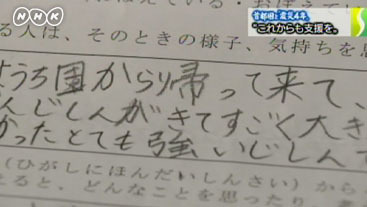 NHK
首都圏 震災4年
"これからも支援を。
る人は、そのときの様子、気持ちを思
ようち園からり帰って来て、
んじしんがきてすごく大き
かったとても強いじしんて
(ひがしにほんだいしんさい)から
ると、どんなことを思ったり